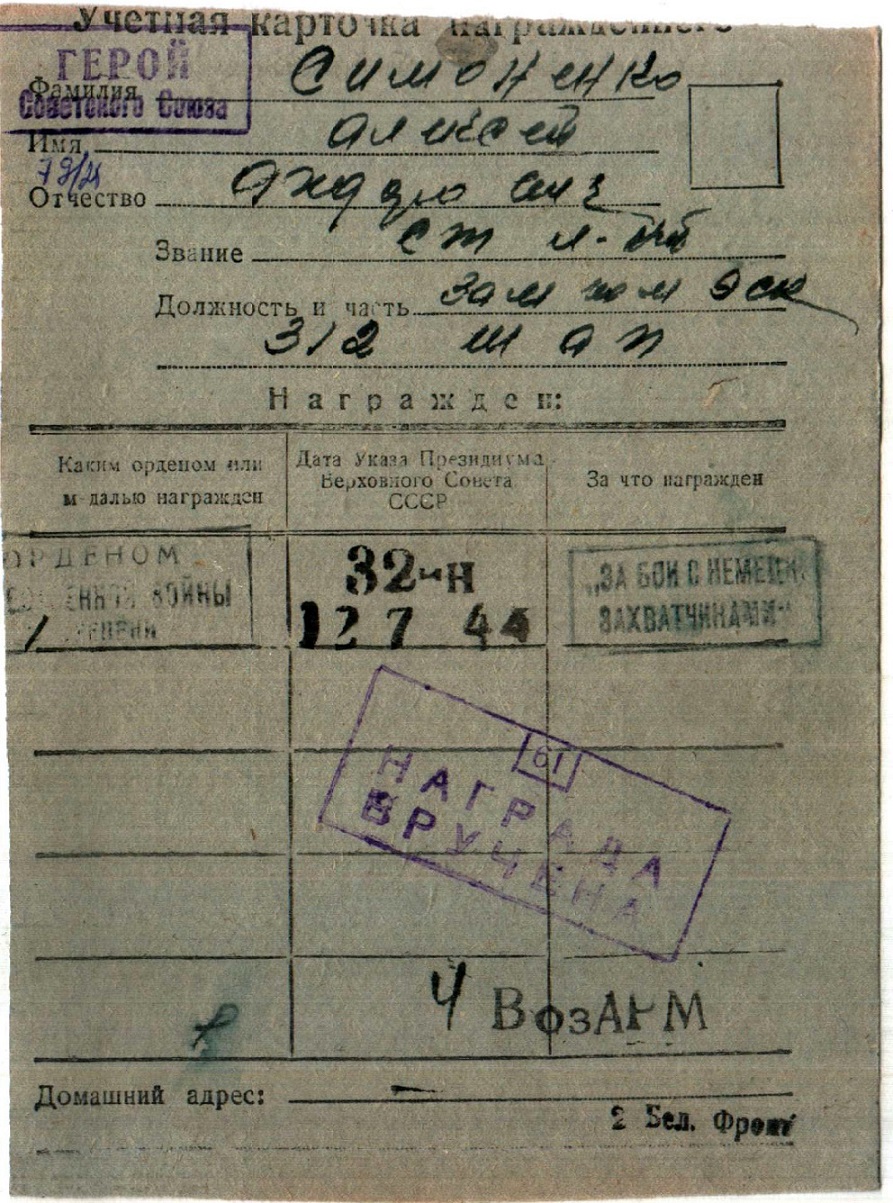 Учетная карточка награжденного
ГЕРОЙ
Советского Союза
Фамилия Симоненко
Имя Алексей
Отчество
Звание ст л-нт
Должность и часть зам ком эск
312 ш а п
Награжден:
Каким орденом или
м далью награжден
Дата Указа Президиума
Верховного Совета
СССР
За что награжден
ОРДЕНОМ
ЕННОЙ ВОЙНЫ
1
32-н
12 7 44
„ЗА БОИ С НЕМЕЦК
ЗАХВАТЧИКАМИ“
61
НАГРАДА
ВРУЧЕНА
4 ВозАРМ
Домашний адрес: —
2 Бел. Фронт